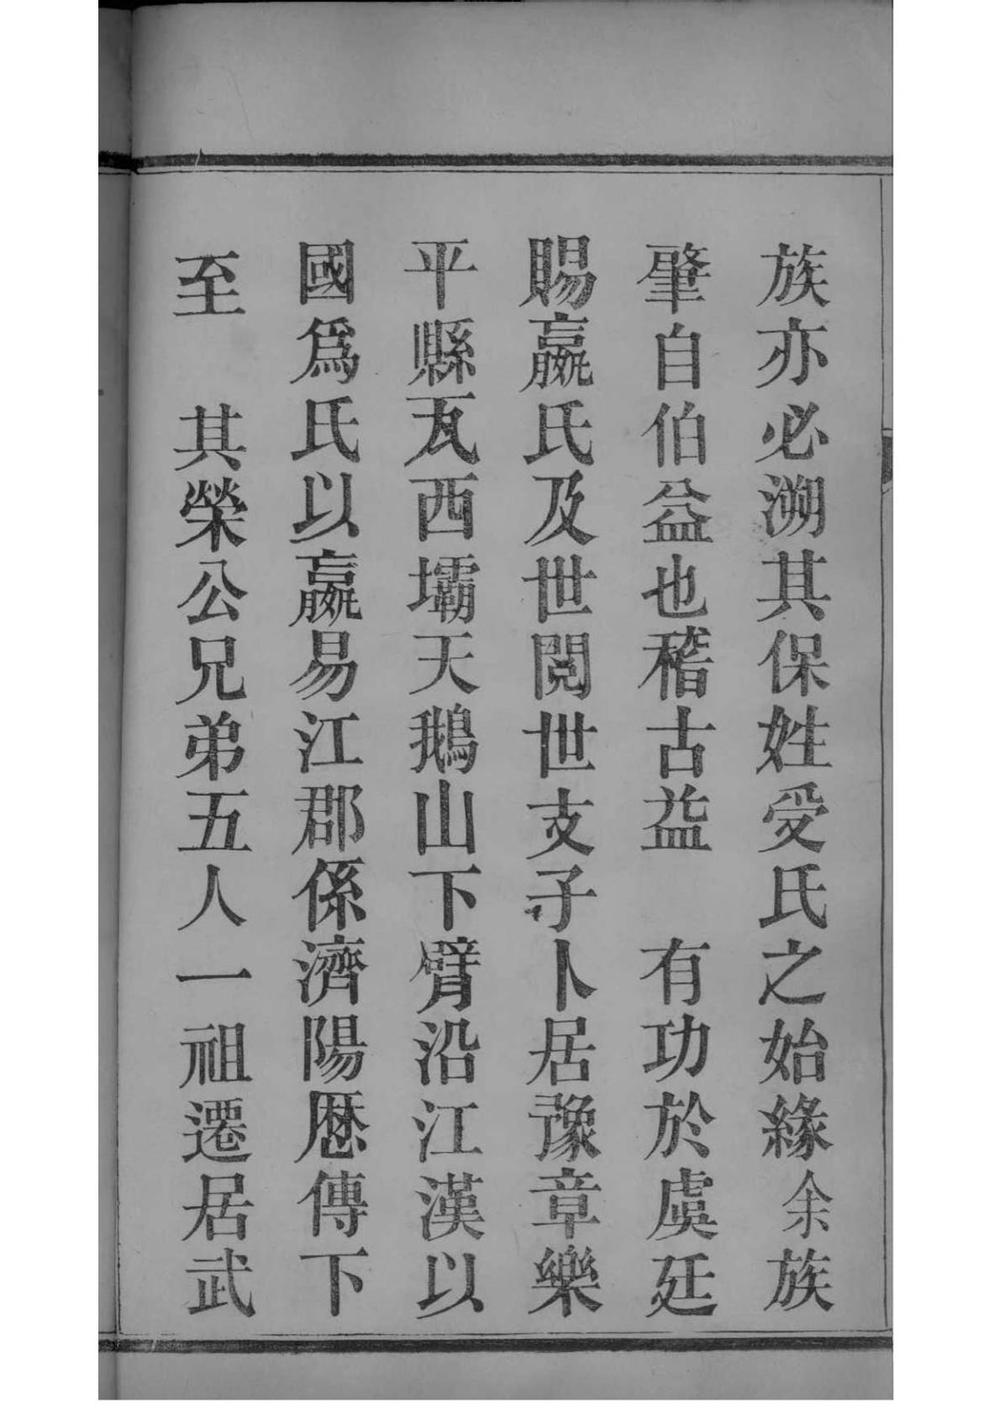 族亦必溯其保姓受氏之始緣余族
肇自伯益也稽古益　有功於虞廷
賜嬴氏及世閱世支子卜居豫章樂
平縣瓦西壩天鵝山下臂沿江漢以
國爲氏以嬴易江郡係濟陽歷傳下
至　其榮公兄弟五人一祖遷居武